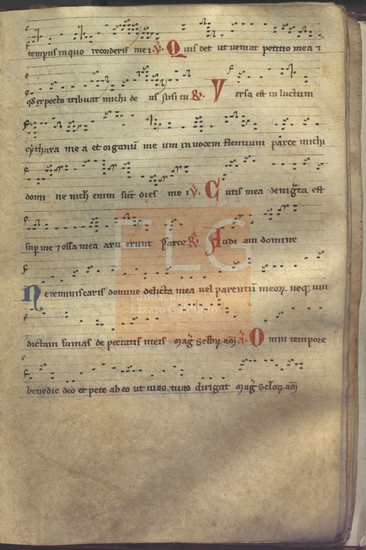 tempus in quo recorderis me i V. Quis det ut veniat petitio mea ⁊
et expecto tribuat michi de us susti cu R. Versa est in luctum
cythara me a et organū me um in vocem flentium parce michi
domi ne nichil enim sūt dies me i V. Cutis mea denigrata est
sup me ⁊ ossa mea aru erunt parce R. Audi am domine
Ne reminiscaris domine delicta mea vel parentum meoꝝ neqꝫ um
dictam sumas de peccatis meis A. Omni tempore
benedic deo et pete ab eo ut vias tuas dirigat
FLC
Lázaro Galdiano